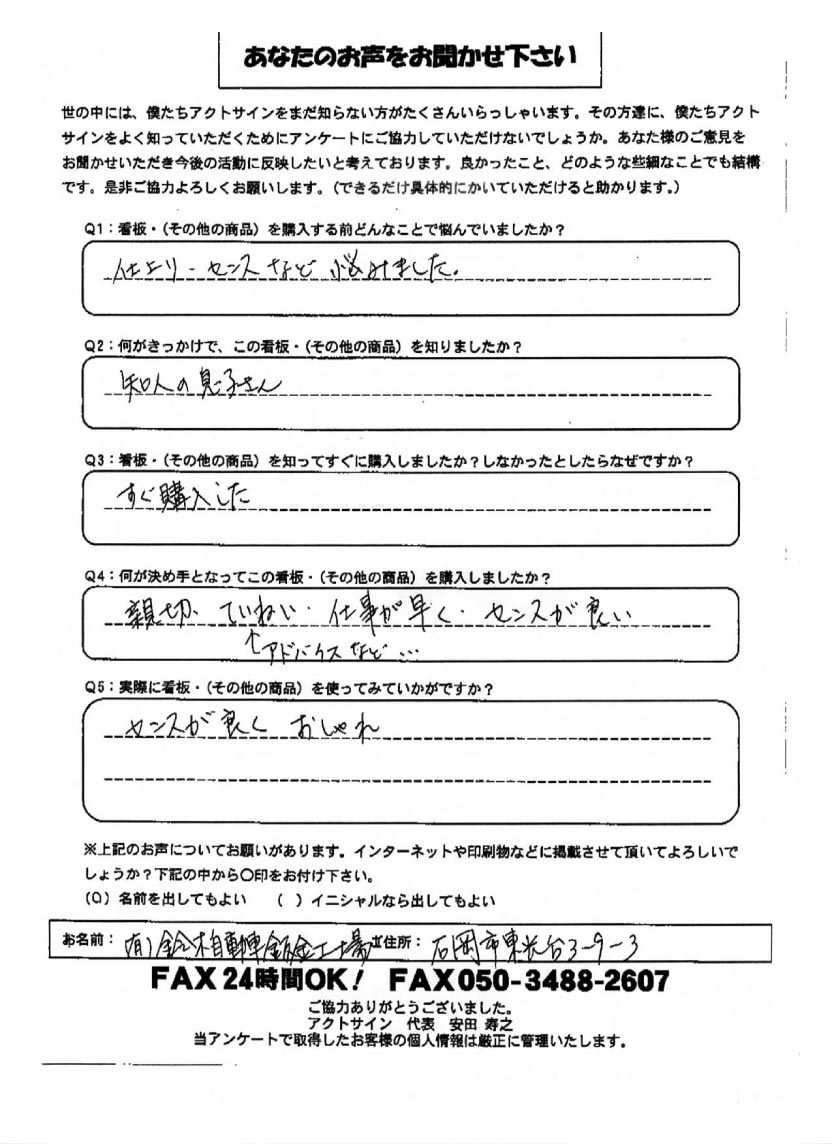 あなたのお声をお聞かせ下さい
世の中には、僕たちアクトサインをまだ知らない方がたくさんいらっしゃいます。その方達に、僕たちアクト
サインをよく知っていただくためにアンケートにご協力していただけないでしょうか。あなた様のご意見を
お聞かせいただき今後の活動に反映したいと考えております。良かったこと、どのような些細なことでも結構
です。是非ご協力よろしくお願いします。（できるだけ具体的にかいていただけると助かります。）
Q1：看板・（その他の商品）を購入する前どんなことで悩んでいましたか？
仕上り・センスなど 悩みました。
Q2：何がきっかけで、この看板・（その他の商品）を知りましたか？
知人の息子さん
Q3：看板・（その他の商品）を知ってすぐに購入しましたか？しなかったとしたらなぜですか？
すぐ購入した
Q4：何が決め手となってこの看板・（その他の商品）を購入しましたか？
親切、ていねい・仕事が早く・センスが良い
↑アドバイスなど…
Q5：実際に看板・（その他の商品）を使ってみていかがですか？
センスが良く おしゃれ
※上記のお声についてお願いがあります。インターネットや印刷物などに掲載させて頂いてよろしいで
しょうか？下記の中から〇印をお付け下さい。
（O）名前を出してもよい （ ）イニシャルなら出してもよい
お名前： (有)鈴木自動車鈑金工場 ご住所： 石岡市東光台3-9-3
FAX24時間OK! FAX050-3488-2607
ご協力ありがとうございました。
アクトサイン 代表 安田 寿之
当アンケートで取得したお客様の個人情報は厳正に管理いたします。